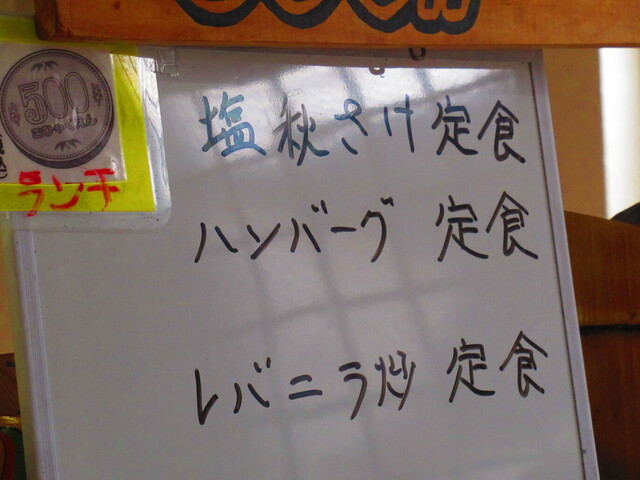 500
ランチ
塩秋さけ定食
ハンバーグ 定食
レバニラ炒 定食